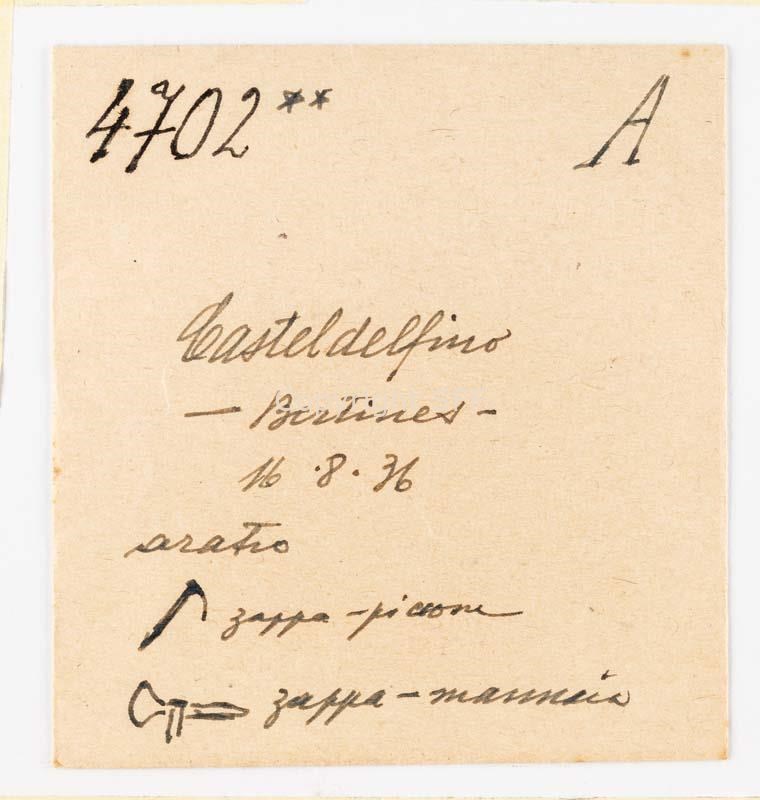 4702** A
Casteldelfino
- Bertines -
16.8.36
aratro
zappa-piccone
zappa-mannaia